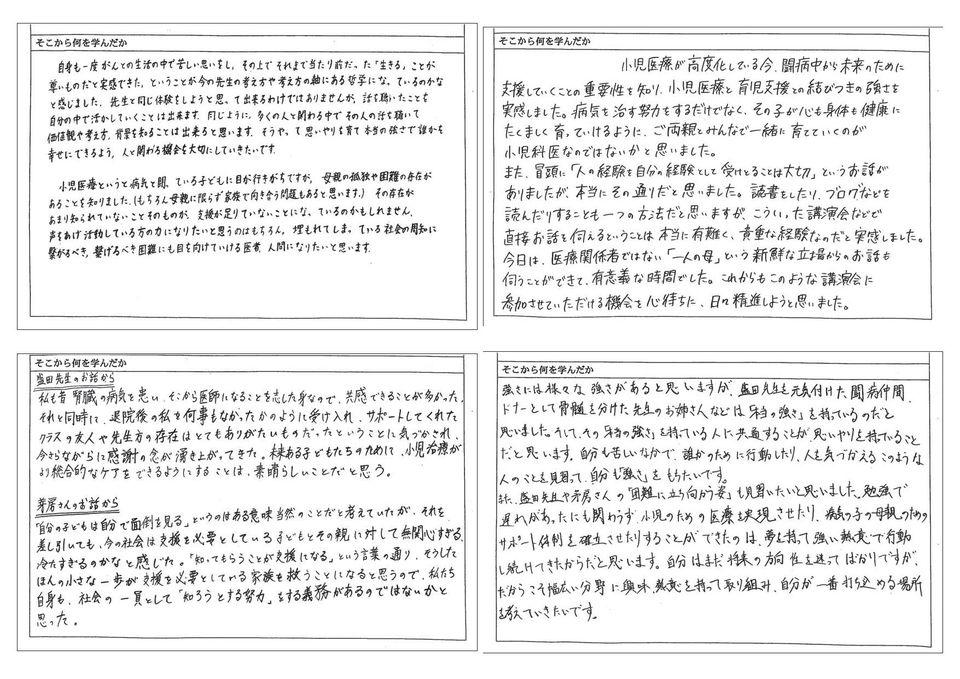 そこから何を学んだか
自身も一度がんとの生活の中で苦しい思いをし、その上でそれまで当たり前だった「生きる」ことが
尊いものだと実感できた、ということが今の先生の考え方や考え方の軸にある哲学になっているのかな
と感じました。先生と同じ体験をしようと思って出来るわけではありませんが、話を聴いたことを
自分の中で活かしていくことは出来ます。同じように、多くの人と関わる中でその人の話を聴いて
価値観や考え方、背景を知ることは出来ると思います。そうやって思いやりを育て本当の強さで誰かを
幸せにできるよう、人と関わる機会を大切にしていきたいです。
小児医療というと病気と闘っている子どもに目が行きがちですが、母親の孤独や困難の存在が
あることを知りました。(もちろん母親に限らず家族で向き合う問題もあると思います。) その存在が
あまり知られていないことそのものが、支援が足りていないことになっているのかもしれません。
声をあげ活動している方の力になりたいと思うのはもちろん、埋もれてしまっている社会の周知に
繋がるべき、繋げるべき困難にも目を向けていける医者、人間になりたいと思います。
そこから何を学んだか
小児医療が高度化している今、闘病中から未来のために
支援していくことの重要性を知り、小児医療と育児支援との結びつきの強さを
実感しました。病気を治す努力をするだけでなく、その子が心も身体も健康に
たくましく育っていけるように、ご両親とみんなで一緒に育てていくのが
小児科医なのではないかと思いました。
また、冒頭に「人の経験を自分の経験として受けとることは大切」というお話が
ありましたが、本当にその通りだと思いました。読書をしたり、ブログなどを
読んだりすることも一つの方法だと思いますが、こういった講演会などで
直接お話を伺えるということは本当に有難く、貴重な経験なのだと実感しました。
今日は、医療関係者ではない「一人の母」という新鮮な立場からのお話も
伺うことができて、有意義な時間でした。これからもこのような講演会に
参加させていただける機会を心待ちに、日々精進しようと思いました。
そこから何を学んだか
盛田先生のお話から
私も昔腎臓の病気を患い、そこから医師になることを志した身なので、共感できることが多かった。
それと同時に、退院後の私を何事もなかったかのように受け入れ、サポートしてくれた
クラスの友人や先生方の存在はとてもありがたいものだったということに気づかされ、
今さらながらに感謝の念が湧き上がってきた。未来ある子どもたちのために、小児治療が
より総合的なケアをできるようにすることは、素晴らしいことだと思う。
芽房さんのお話から
「自分の子どもは自分で面倒を見る」というのはある意味当然のことだと考えていたが、それを
差し引いても、今の社会は支援を必要としている子どもとその親に対して無関心すぎる、
冷たすぎるのかなと感じた。「知ってもらうことが支援になる」という言葉の通り、そうした
ほんの小さな一歩が支援を必要としている家族を救うことになると思うので、私たち
自身も、社会の一員として「知ろうとする努力」をする義務があるのではないかと
思った。
そこから何を学んだか
強さには様々な強さがあると思いますが、盛田先生を元気付けた闘病仲間、
ドナーとして骨髄を分けた先生のお姉さんなどは「本当の強さ」を持っているのだと
思いました。そして、その「本当の強さ」を持っている人に共通することが思いやりを持っていること
だと思います。自分も苦しいなかで、誰かのために行動したり、人を気づかえるこのような
人のことを見習って、自分も「強さ」をもちたいです。
また、盛田先生や芽房さんの「困難に立ち向かう姿」も見習いたいと思いました。勉強で
遅れがあったにも関わらず、小児のための医療を実現させたり、病気の子の母親のための
サポート体制を確立させたりすることができたのは、夢を持って強い熱意で行動
し続けてきたからだと思います。自分はまだ将来の方向性を迷ってばかりですが、
だからこそ幅広い分野に興味、熱意を持って取り組み、自分が一番打ち込める場所
を考えていきたいです。